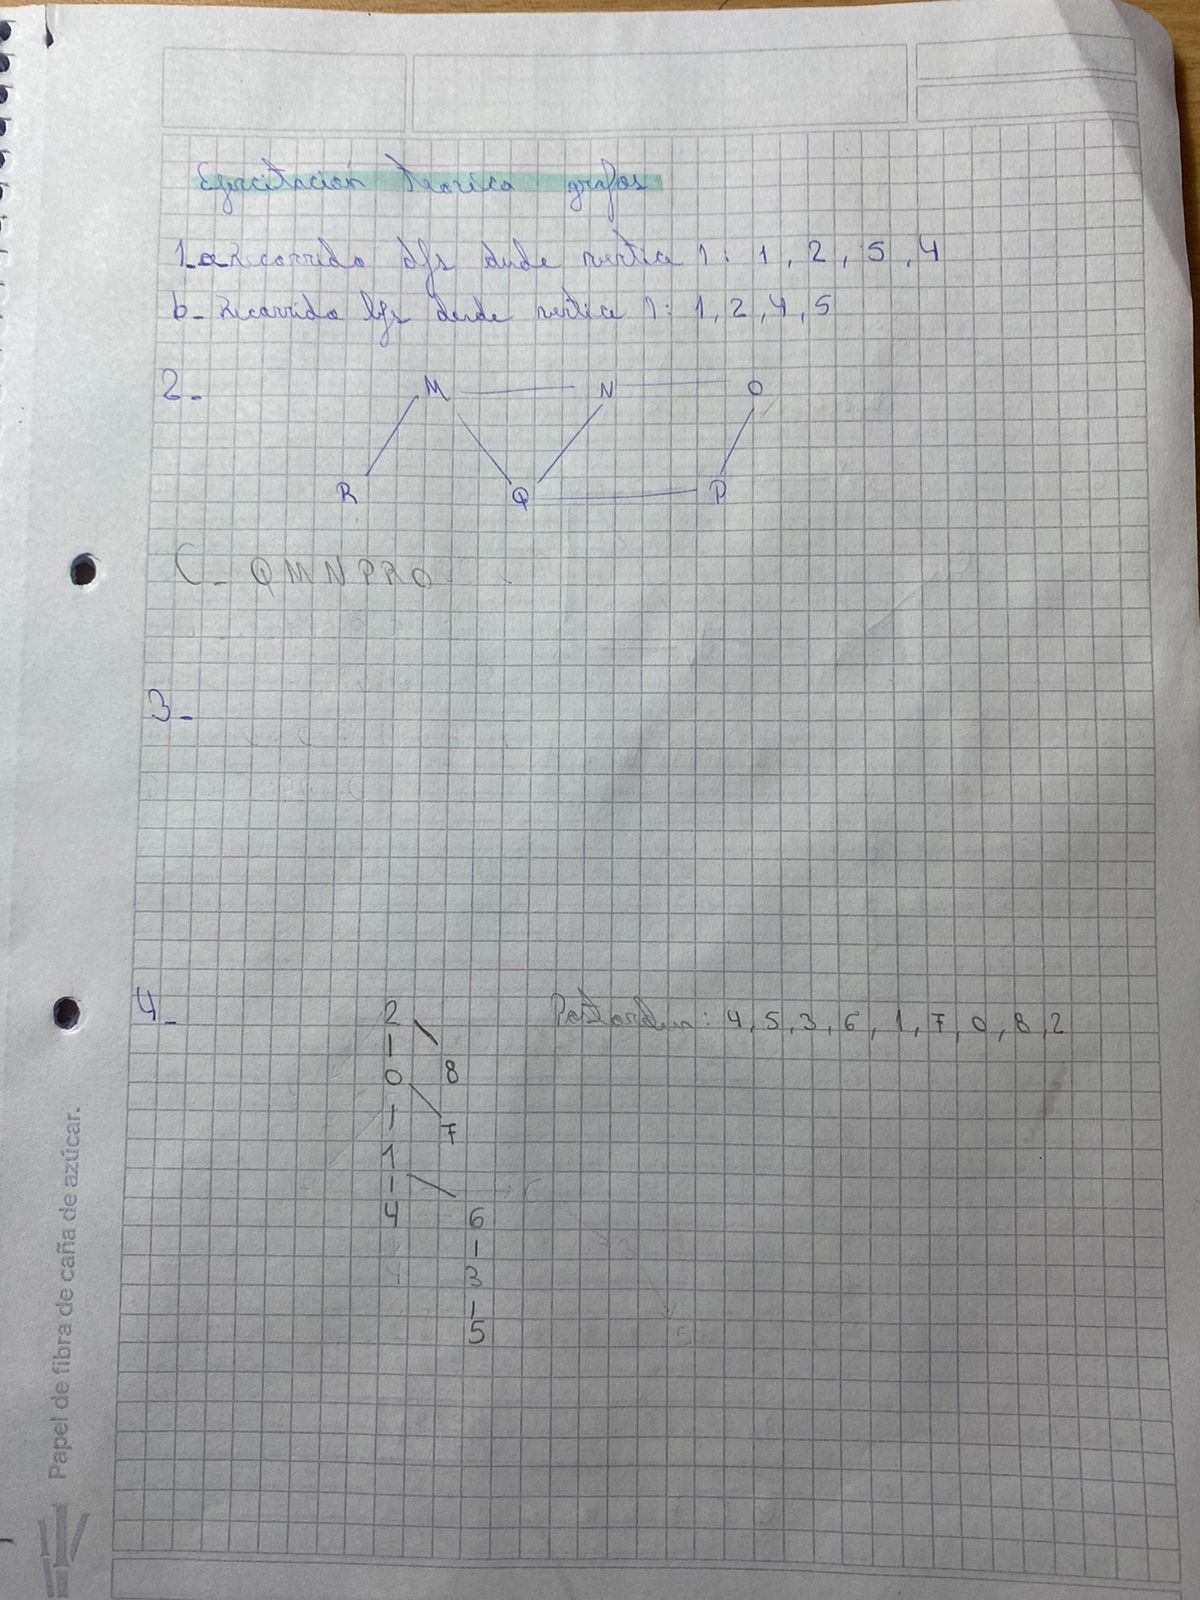 Ejercitación teorica grafos
1_a Recorrido dfs desde vertice 1: 1, 2, 5, 4
b- Recorrido bfs desde vertice 1: 1, 2, 4, 5
2-
M N O
R Q P
C- QMNPRO
3-
4-
Postorden: 4, 5, 3, 6, 1, 7, 0, 8, 2
2
0 8
7
1
4 6
3
5
Papel de fibra de caña de azúcar.